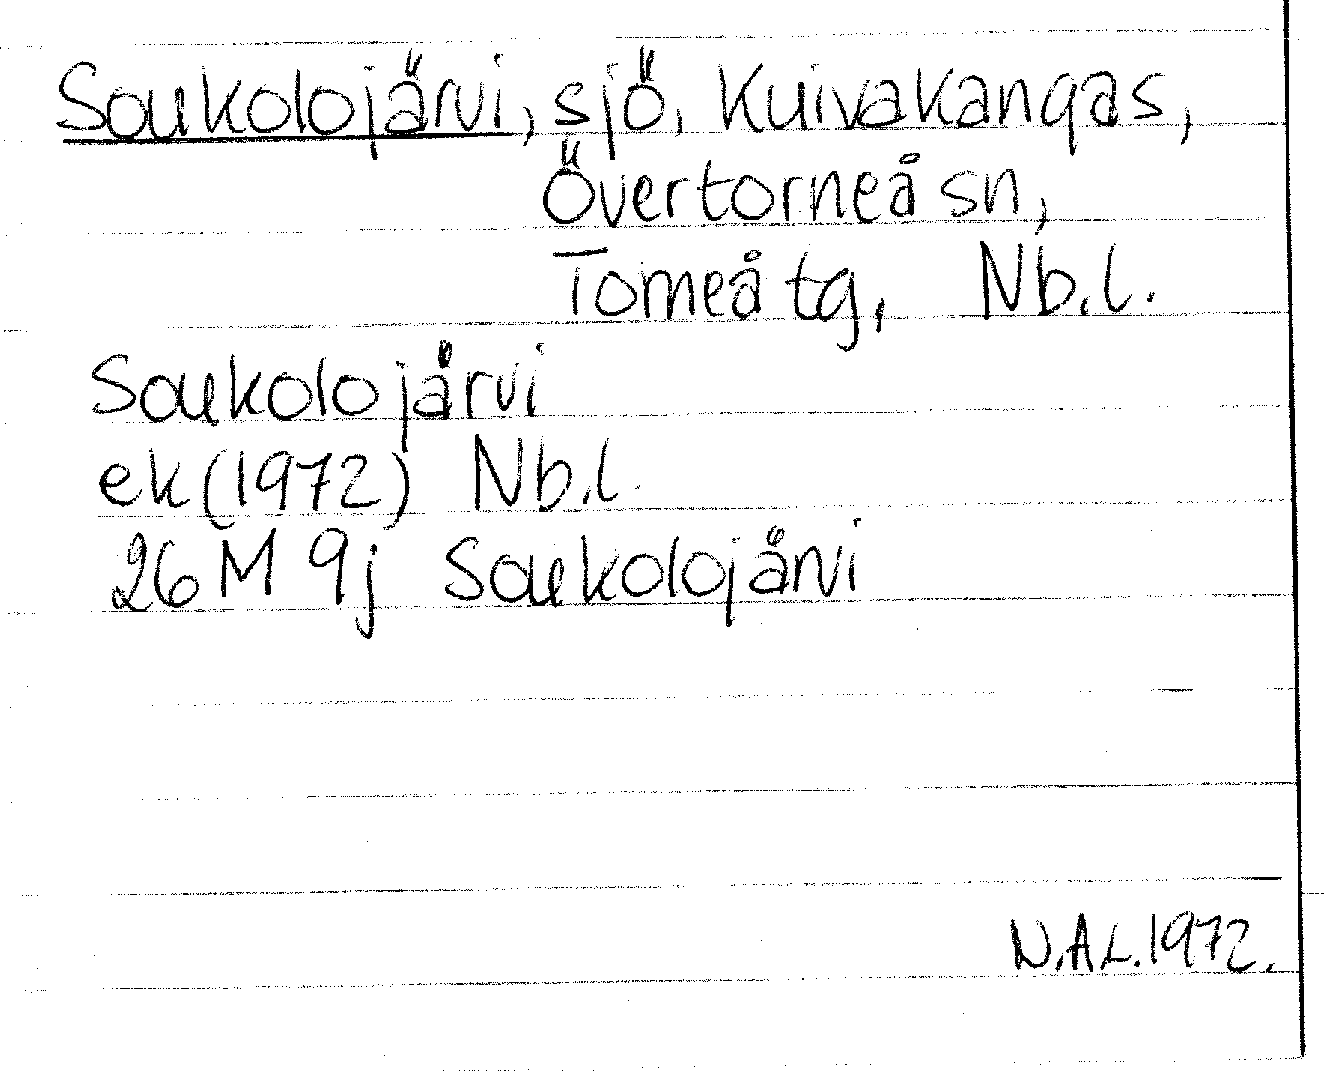 Soukolojärvi, sjö, Kuivakangas,
Övertorneå sn,
Torneå tg, Nb.l.
Soukolojärvi
ek (1972) Nb.l.
26 M 9j Soukolojärvi
N.A.L. 1972.